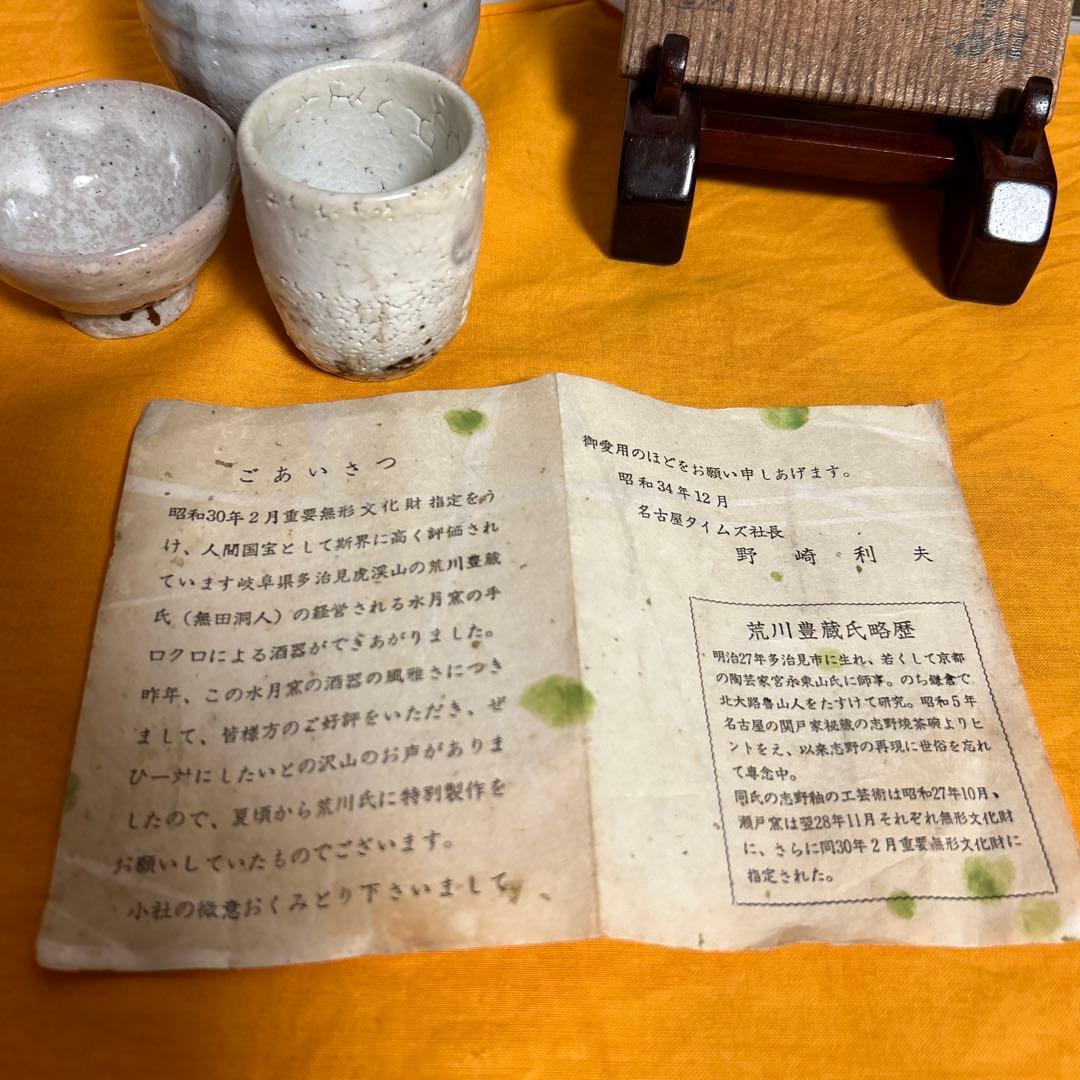 ごあいさつ
昭和30年2月重要無形文化財指定をう
け、人間国宝として斯界に高く評価され
ています岐阜県多治見虎渓山の荒川豊蔵
氏（無田洞人）の経営される水月窯の手
ロクロによる酒器ができあがりました。
昨年、この水月窯の酒器の風雅さにつき
まして、皆様方のご好評をいただき、ぜ
ひ一対にしたいとの沢山のお声がありま
したので、夏頃から荒川氏に特別製作を
お願いしていたものでございます。
小社の微意おくみとり下さいまして、
御愛用のほどをお願い申しあげます。
昭和34年12月
名古屋タイムズ社長
野崎利夫
荒川豊蔵氏略歴
明治27年多治見市に生れ、若くして京都
の陶芸家宮永東山氏に師事。のち鎌倉で
北大路魯山人をたすけて研究。昭和5年
名古屋の関戸家秘蔵の志野焼茶碗よりヒ
ントをえ、以来志野の再現に世俗を忘れ
て専念中。
同氏の志野釉の工芸術は昭和27年10月、
瀬戸窯は翌28年11月それぞれ無形文化財
に、さらに同30年2月重要無形文化財に
指定された。